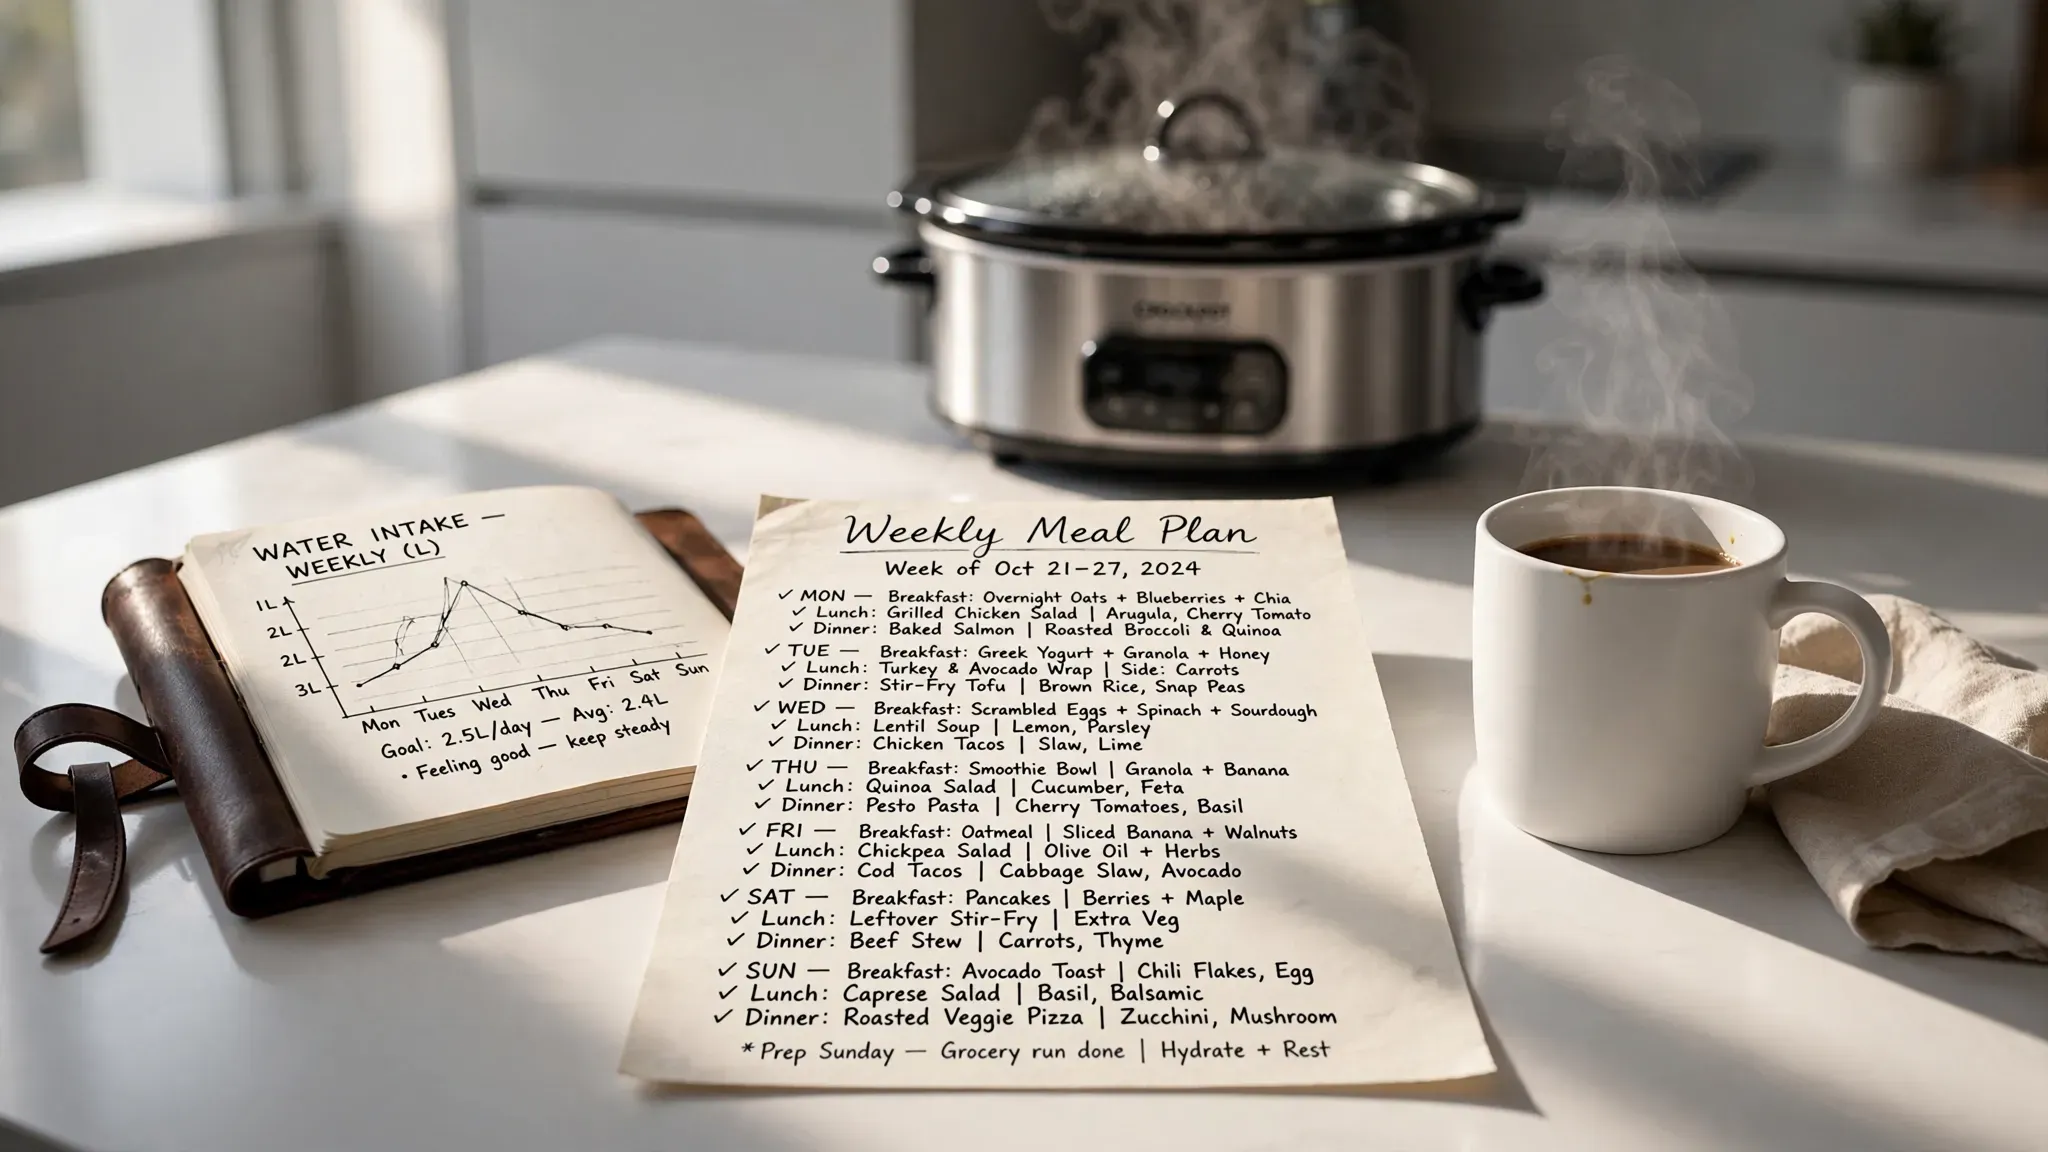 WATER INTAKE —
WEEKLY (L)
1L
2L
2L
3L
Mon Tues Wed Thu Fri Sat Sun
Goal: 2.5L/day — Avg: 2.4L
• Feeling good — keep steady
Weekly Meal Plan
Week of Oct 21-27, 2024
✓ MON — Breakfast: Overnight Oats + Blueberries + Chia
✓ Lunch: Grilled Chicken Salad | Arugula, Cherry Tomato
✓ Dinner: Baked Salmon | Roasted Broccoli & Quinoa
✓ TUE — Breakfast: Greek Yogurt + Granola + Honey
✓ Lunch: Turkey & Avocado Wrap | Side: Carrots
✓ Dinner: Stir-Fry Tofu | Brown Rice, Snap Peas
✓ WED — Breakfast: Scrambled Eggs + Spinach + Sourdough
✓ Lunch: Lentil Soup | Lemon, Parsley
✓ Dinner: Chicken Tacos | Slaw, Lime
✓ THU — Breakfast: Smoothie Bowl | Granola + Banana
✓ Lunch: Quinoa Salad | Cucumber, Feta
✓ Dinner: Pesto Pasta | Cherry Tomatoes, Basil
✓ FRI — Breakfast: Oatmeal | Sliced Banana + Walnuts
✓ Lunch: Chickpea Salad | Olive Oil + Herbs
✓ Dinner: Cod Tacos | Cabbage Slaw, Avocado
✓ SAT — Breakfast: Pancakes | Berries + Maple
✓ Lunch: Leftover Stir-Fry | Extra Veg
✓ Dinner: Beef Stew | Carrots, Thyme
✓ SUN — Breakfast: Avocado Toast | Chili Flakes, Egg
✓ Lunch: Caprese Salad | Basil, Balsamic
✓ Dinner: Roasted Veggie Pizza | Zucchini, Mushroom
* Prep Sunday — Grocery run done | Hydrate + Rest